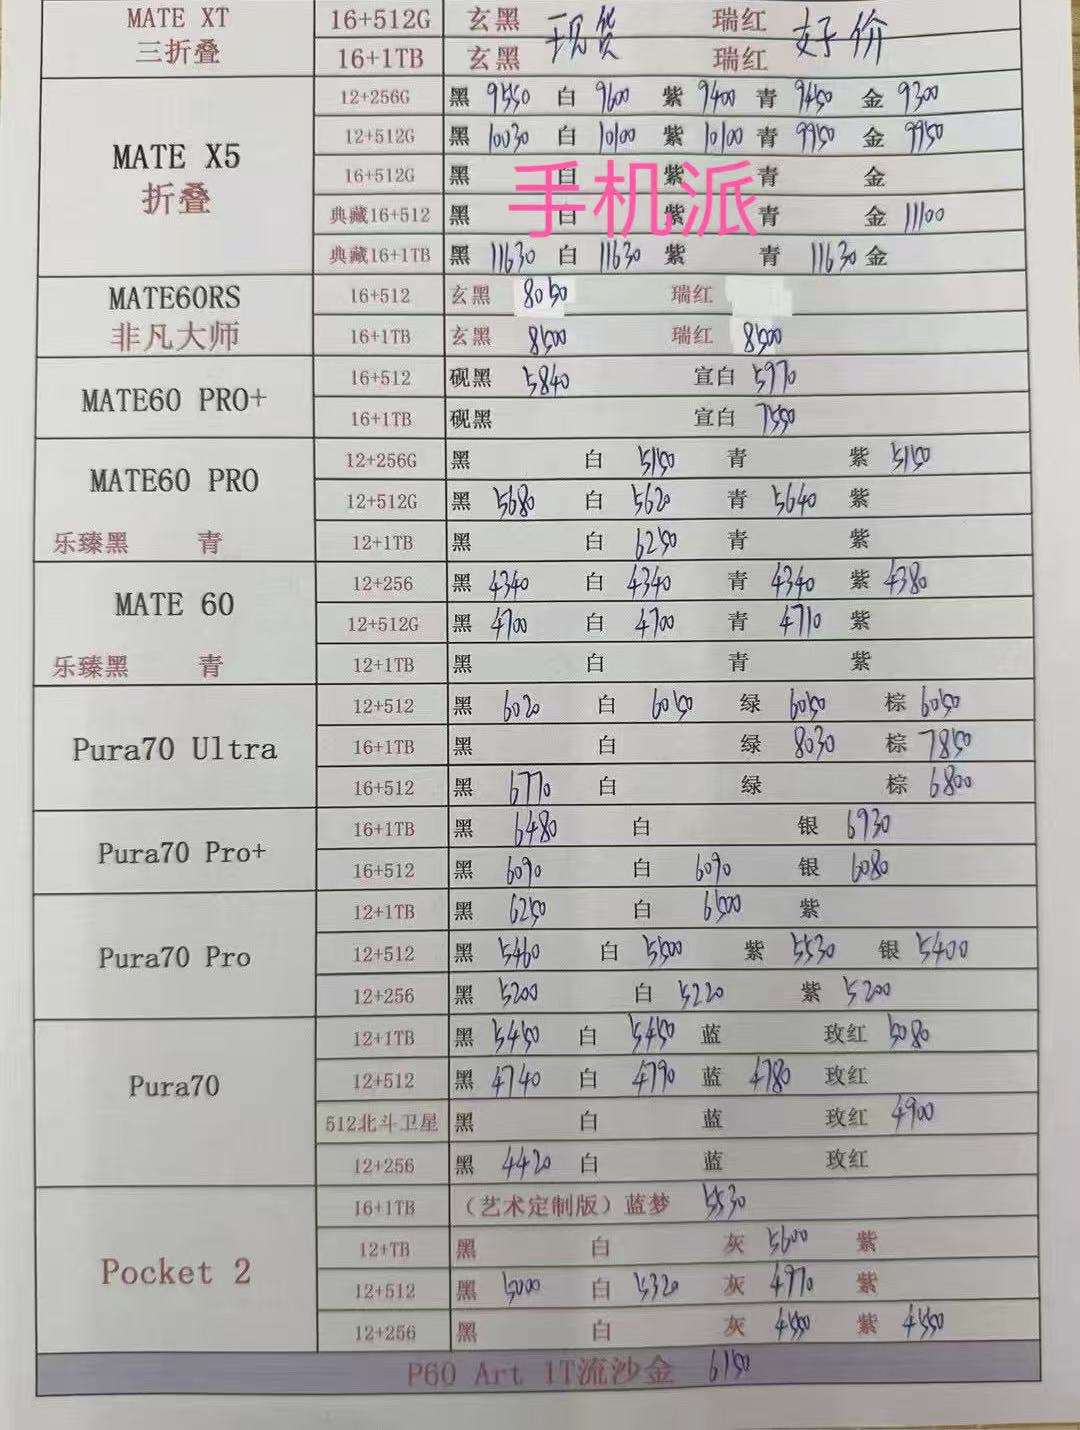 MATE XT 16+512G 玄黑 现货 瑞红 好价
三折叠 16+1TB 玄黑 瑞红
12+256G 黑 9550 白 9600 紫 9400 青 9450 金 9300
12+512G 黑 10030 白 10100 紫 10100 青 9950 金 9950
MATE X5 16+512G 黑 白 紫 青 金
手机派
折叠 典藏16+512 黑 白 紫 青 金 11100
典藏16+1TB 黑 11630 白 11630 紫 青 11630 金
MATE60RS 16+512 玄黑 8050 瑞红
非凡大师 16+1TB 玄黑 8500 瑞红 8500
MATE60 PRO+ 16+512 砚黑 5840 宣白 5970
16+1TB 砚黑 宣白 7550
12+256G 黑 白 5150 青 紫 5150
MATE60 PRO 12+512G 黑 5680 白 5620 青 5640 紫
乐臻黑 青 12+1TB 黑 白 6250 青 紫
MATE 60 12+256 黑 4340 白 4340 青 4340 紫 4380
12+512G 黑 4700 白 4700 青 4710 紫
乐臻黑 青 12+1TB 黑 白 青 紫
12+512 黑 6020 白 6050 绿 6050 棕 6050
Pura70 Ultra 16+1TB 黑 白 绿 8030 棕 7850
16+512 黑 6770 白 绿 棕 6800
Pura70 Pro+ 16+1TB 黑 6480 白 银 6930
16+512 黑 6090 白 6090 银 6080
12+1TB 黑 6250 白 6500 紫
Pura70 Pro 12+512 黑 5460 白 5500 紫 5530 银 5400
12+256 黑 5200 白 5220 紫 5200
12+1TB 黑 5450 白 5450 蓝 玫红 5080
Pura70 12+512 黑 4740 白 4790 蓝 4780 玫红
512北斗卫星 黑 白 蓝 玫红 4900
12+256 黑 4420 白 蓝 玫红
16+1TB （艺术定制版）蓝梦 5530
12+TB 黑 白 灰 5600 紫
Pocket 2 12+512 黑 5000 白 5320 灰 4970 紫
12+256 黑 白 灰 4550 紫 4550
P60 Art 1T流沙金 6150